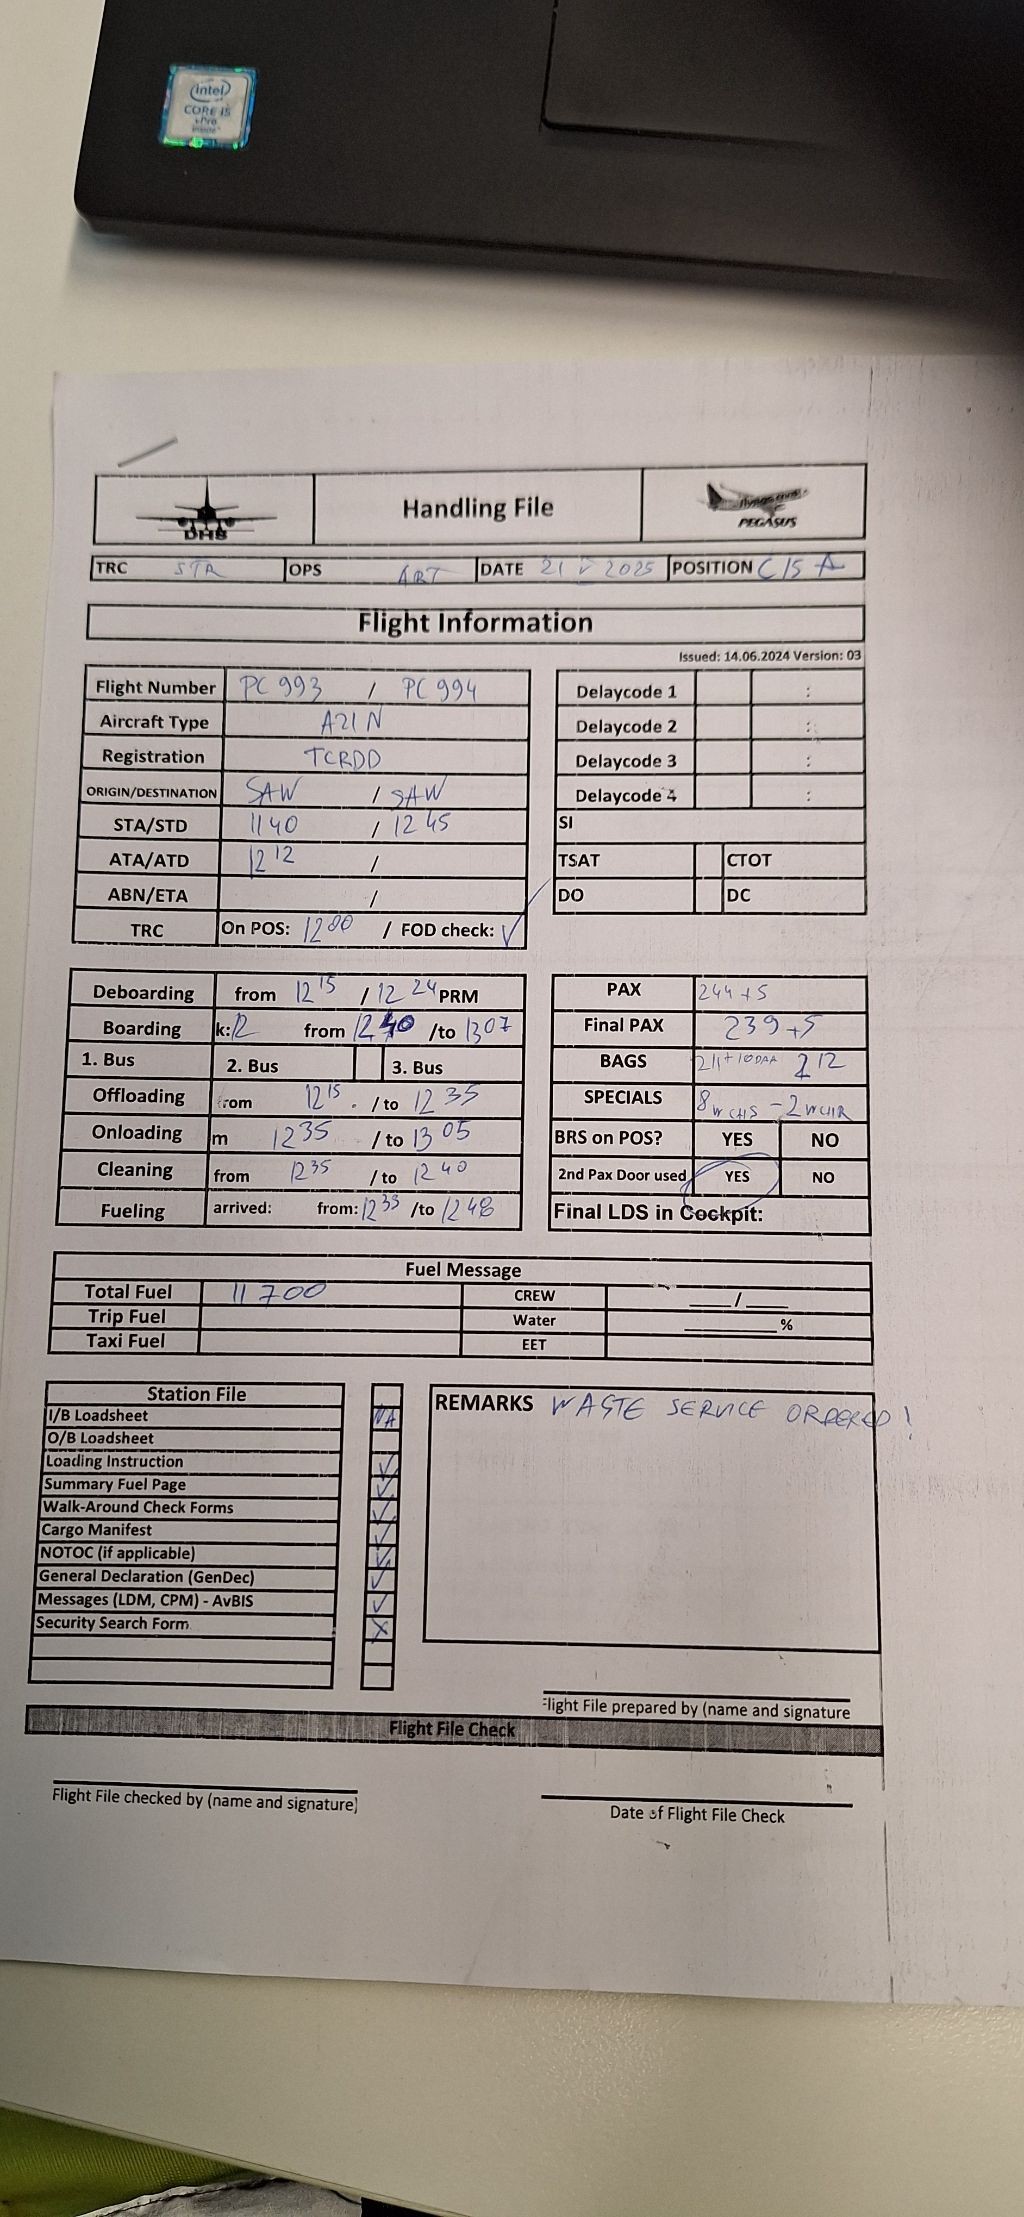 intel
CORE i5
vPro
inside
DHS
Handling File
flypgs.com
PEGASUS
TRC STR OPS ART DATE 21 V 2025 POSITION C15A
Flight Information
Issued: 14.06.2024 Version: 03
Flight Number PC 993 / PC 994
Aircraft Type A21N
Registration TCRDD
ORIGIN/DESTINATION SAW / SAW
STA/STD 1140 / 1245
ATA/ATD 1212 /
ABN/ETA /
TRC On POS: 1200 / FOD check: ✓
Delaycode 1 :
Delaycode 2 :
Delaycode 3 :
Delaycode 4 :
SI
TSAT CTOT
DO DC
Deboarding from 1215 / 1224 PRM
Boarding k: 12 from 1240 /to 1307
1. Bus 2. Bus 3. Bus
Offloading from 1215 . / to 1235
Onloading m 1235 / to 1305
Cleaning from 1235 / to 1240
Fueling arrived: from: 1233 /to 1248
PAX 244+5
Final PAX 239+5
BAGS 212
SPECIALS 8 WCHS - 2 WCHR
BRS on POS? YES NO
2nd Pax Door used YES NO
Final LDS in Cockpit:
Fuel Message
Total Fuel 11700 CREW ___/___
Trip Fuel Water ______%
Taxi Fuel EET
Station File
I/B Loadsheet NA
O/B Loadsheet
Loading Instruction ✓
Summary Fuel Page ✓
Walk-Around Check Forms ✓
Cargo Manifest ✓
NOTOC (if applicable) ✓
General Declaration (GenDec) ✓
Messages (LDM, CPM) - AvBIS ✓
Security Search Form X
REMARKS WASTE SERVICE ORDERED!
Flight File prepared by (name and signature
Flight File Check
Flight File checked by (name and signature)
Date of Flight File Check